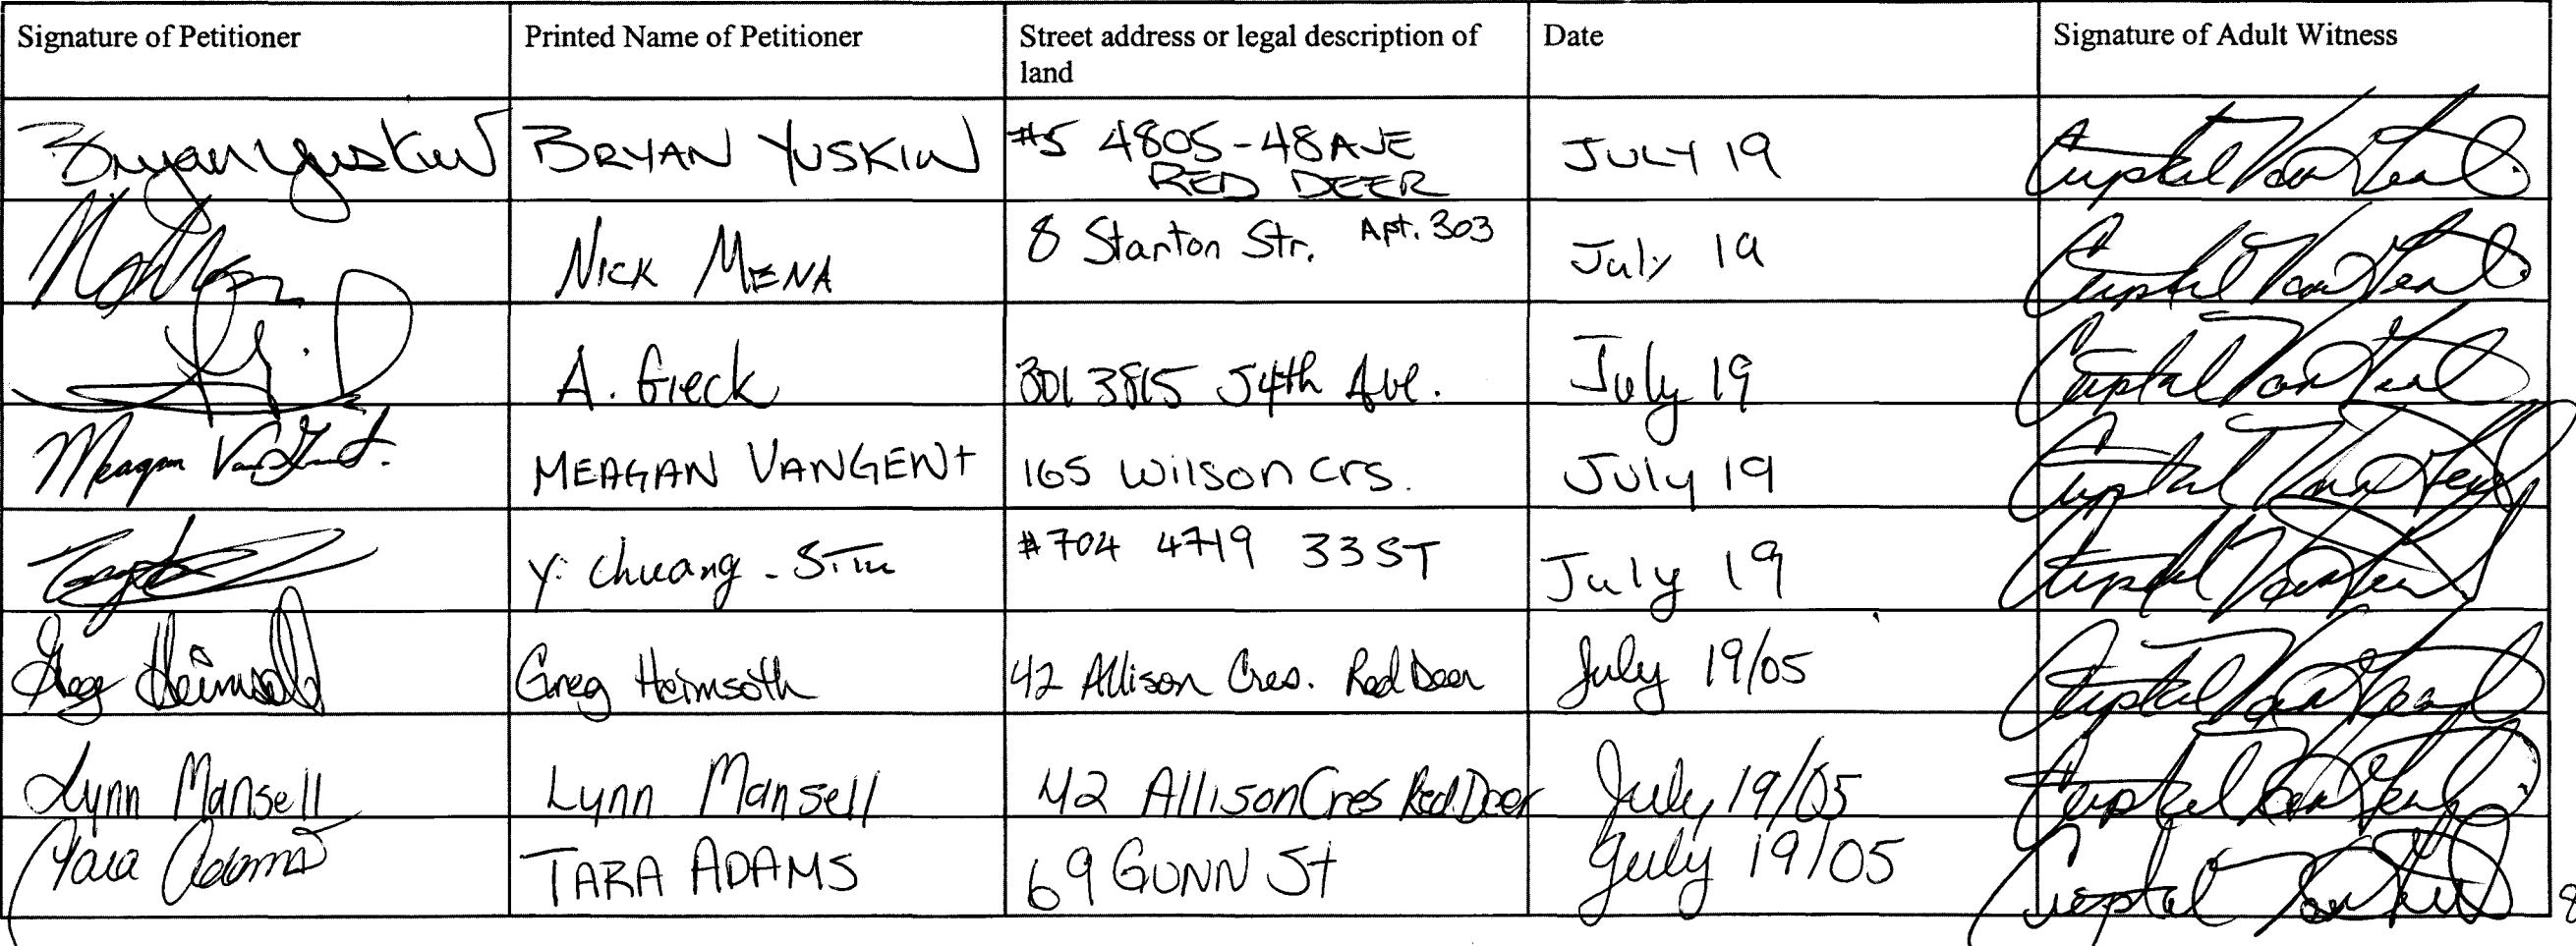 Signature of Petitioner Printed Name of Petitioner Street address or legal description of land Date Signature of Adult Witness
Bryan Yuskiw BRYAN YUSKIW #5 4805-48 AVE RED DEER JULY 19 Crystal
NICK MENA 8 Stanton Str. Apt. 303 July 19 Crystal
A. Gieck 301 3815 54th Ave. July 19 Crystal
Meagan VanGent. MEAGAN VANGENT 165 Wilson crs. July 19 Crystal
Y. Chuang - #704 4719 33 ST July 19 Crystal
Greg Heimsoth Greg Heimsoth 42 Allison Cres. Red Deer July 19/05 Crystal
Lynn Mansell Lynn Mansell 42 Allison Cres Red Deer July 19/05 Crystal
Tara Adams TARA ADAMS 69 GUNN St July 19/05 Crystal